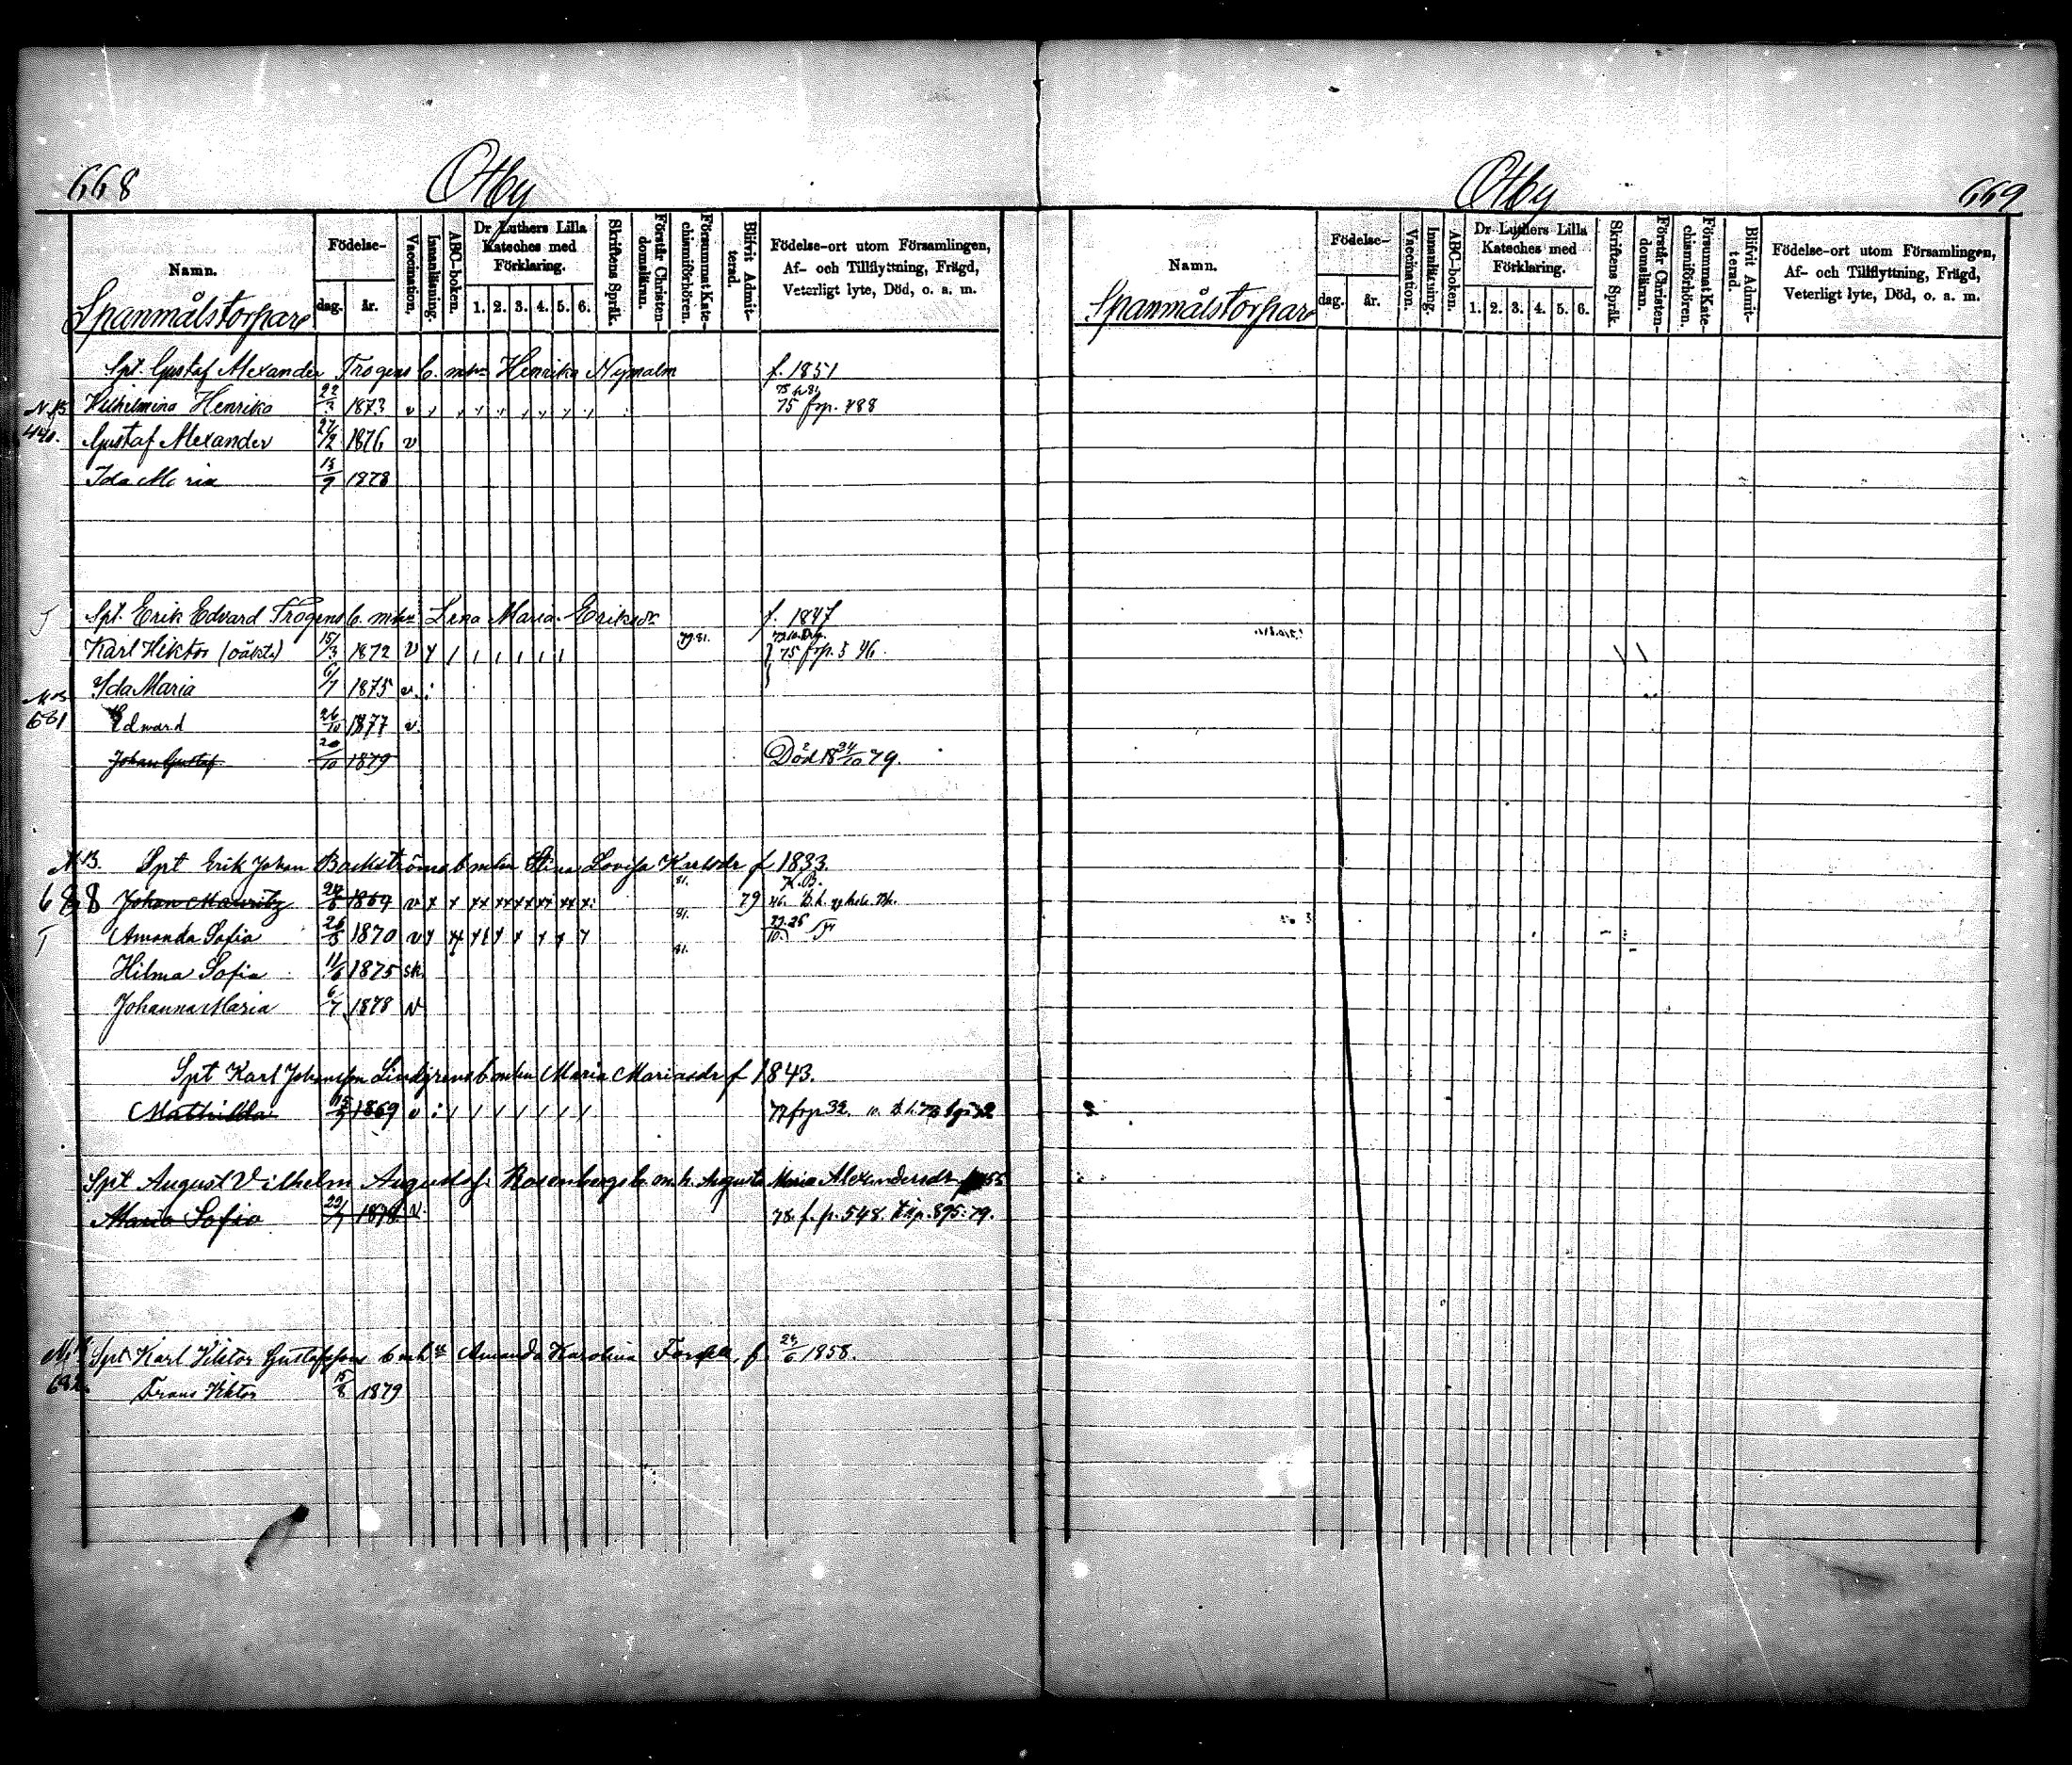 668 Otby
Namn.
Födelse-
dag. år.
Vaccination.
Innanläsning.
ABC-boken.
Dr Luthers Lilla Kateches med Förklaring.
1. 2. 3. 4. 5. 6.
Skriftens Språk.
Förstår Christendomsläran.
Försummat Katechismiförhören.
Blifvit Admitterad.
Födelse-ort utom Församlingen,
Af- och Tillflyttning, Frägd,
Veterligt lyte, Död, o. a. m.
Spanmålstorpare
Spt. Gustaf Alexander Trogens b. m. hu Henrika Nymalm f. 1851
Wilhelmina Henrika 22/3 1873 v 75 frp. 488
Gustaf Alexander 1876 v
Ida Maria 13/9 1878
Spt. Erik Edvard Trogens b. m. hu Lena Maria Eriksdr f. 1847
Karl Viktor (oäkta) 15/3 1872 v 79.81. 75 frp. 546.
Ida Maria 6/7 1875 v.
681 Edward 26/10 1877 v.
Johan Gustaf 20/10 1879 Död 24/10 79.
N.B. Spt Erik Johan Backströms b m hu Stina Lovisa Karlsdr f 1833.
688 Johan Mauritz 1869 v 81. 79
Amanda Sofia 1870 v 81.
Hilma Sofia 11/6 1875 sk. 81.
Johanna Maria 6/7 1878 v
Spt Karl Johansson Lindgrens b m hu Maria Mariasdr f 1843.
Mathilda 1869 v 77 frp 32.
Spt August Vilhelm Augustsf. Rosenbergs b. m. h. Augusta Maria Alexandersdr
Maria Sofia 22/7 1878 v. 78. f. p. 548. 895. 79.
Spt Karl Viktor Gustafssons b m h Amanda Karolina f. 1858.
682 Frans Viktor 15/8 1879
Otby 669
Namn.
Födelse-
dag. år.
Vaccination.
Innanläsning.
ABC-boken.
Dr Luthers Lilla Kateches med Förklaring.
1. 2. 3. 4. 5. 6.
Skriftens Språk.
Förstår Christendomsläran.
Försummat Katechismiförhören.
Blifvit Admitterad.
Födelse-ort utom Församlingen,
Af- och Tillflyttning, Frägd,
Veterligt lyte, Död, o. a. m.
Spanmålstorpare